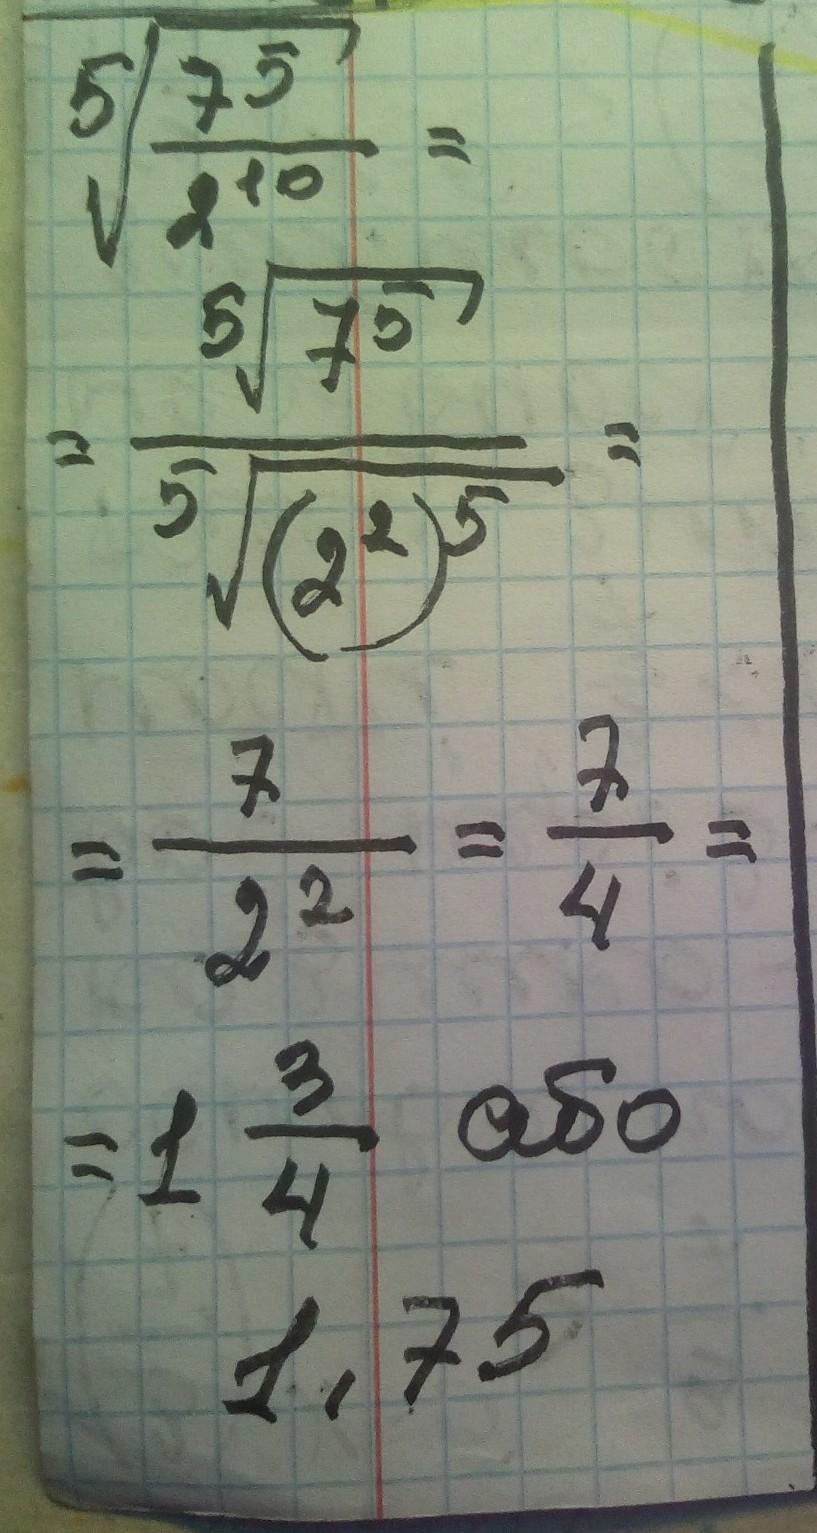 ⁵√(7⁵/2¹⁰) =
= ⁵√(7⁵) / ⁵√((2²)⁵) =
= 7/2² = 7/4 =
= 1 3/4 або
1,75